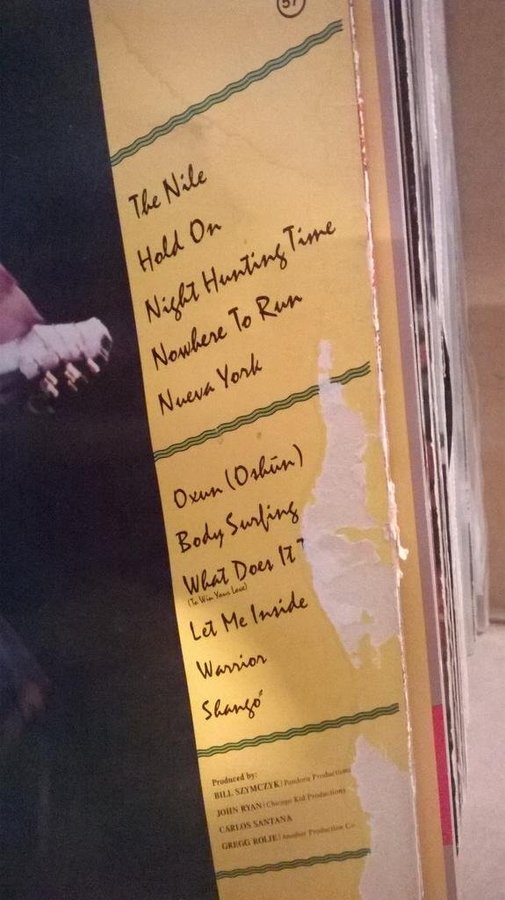 57
The Nile
Hold On
Night Hunting Time
Nowhere To Run
Nueva York
Oxun (Oshūn)
Body Surfing
What Does It
(To Win Your Love)
Let Me Inside
Warrior
Shangó
Produced by:
BILL SZYMCZYK/Pandora Productions
JOHN RYAN/Chicago Kid Productions
CARLOS SANTANA
GREGG ROLIE/Another Production Co.